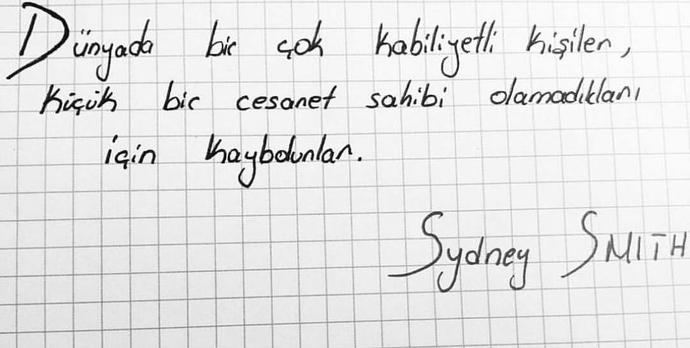 Dünyada bir çok kabiliyetli kişiler,
küçük bir cesaret sahibi olamadıkları
için kaybolurlar.
Sydney SMITH